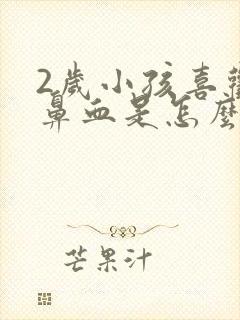 2歲小孩喜
鼻血是怎麼
芒果汁